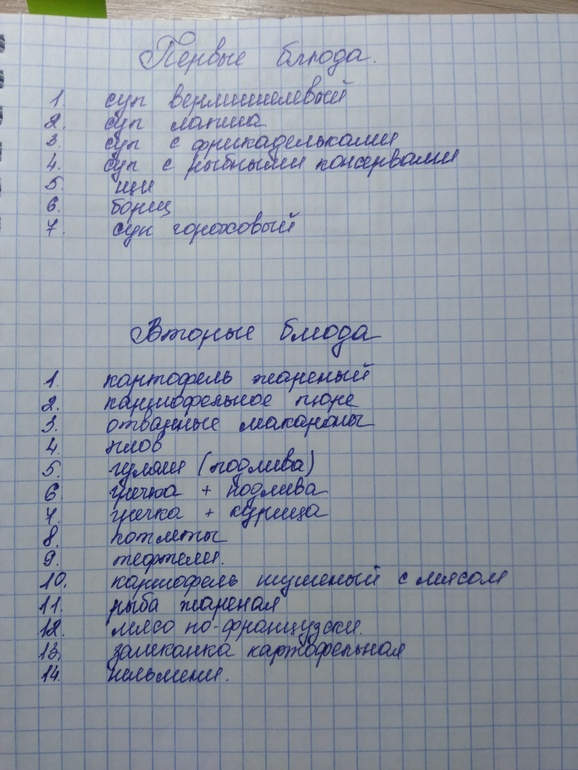 Первые блюда.
1. суп вермишелевый
2. суп лапша
3. суп с фрикадельками
4. суп с рыбными консервами
5. щи
6. борщ
7. суп гороховый
Вторые блюда
1. картофель жареный
2. картофельное пюре
3. отварные макароны
4. плов
5. гуляш (подлива)
6. гречка + подлива
7. гречка + курица
8. котлеты
9. тефтели.
10. картофель тушеный с мясом
11. рыба жареная
12. мясо по-французски.
13. запеканка картофельная
14. пельмени.